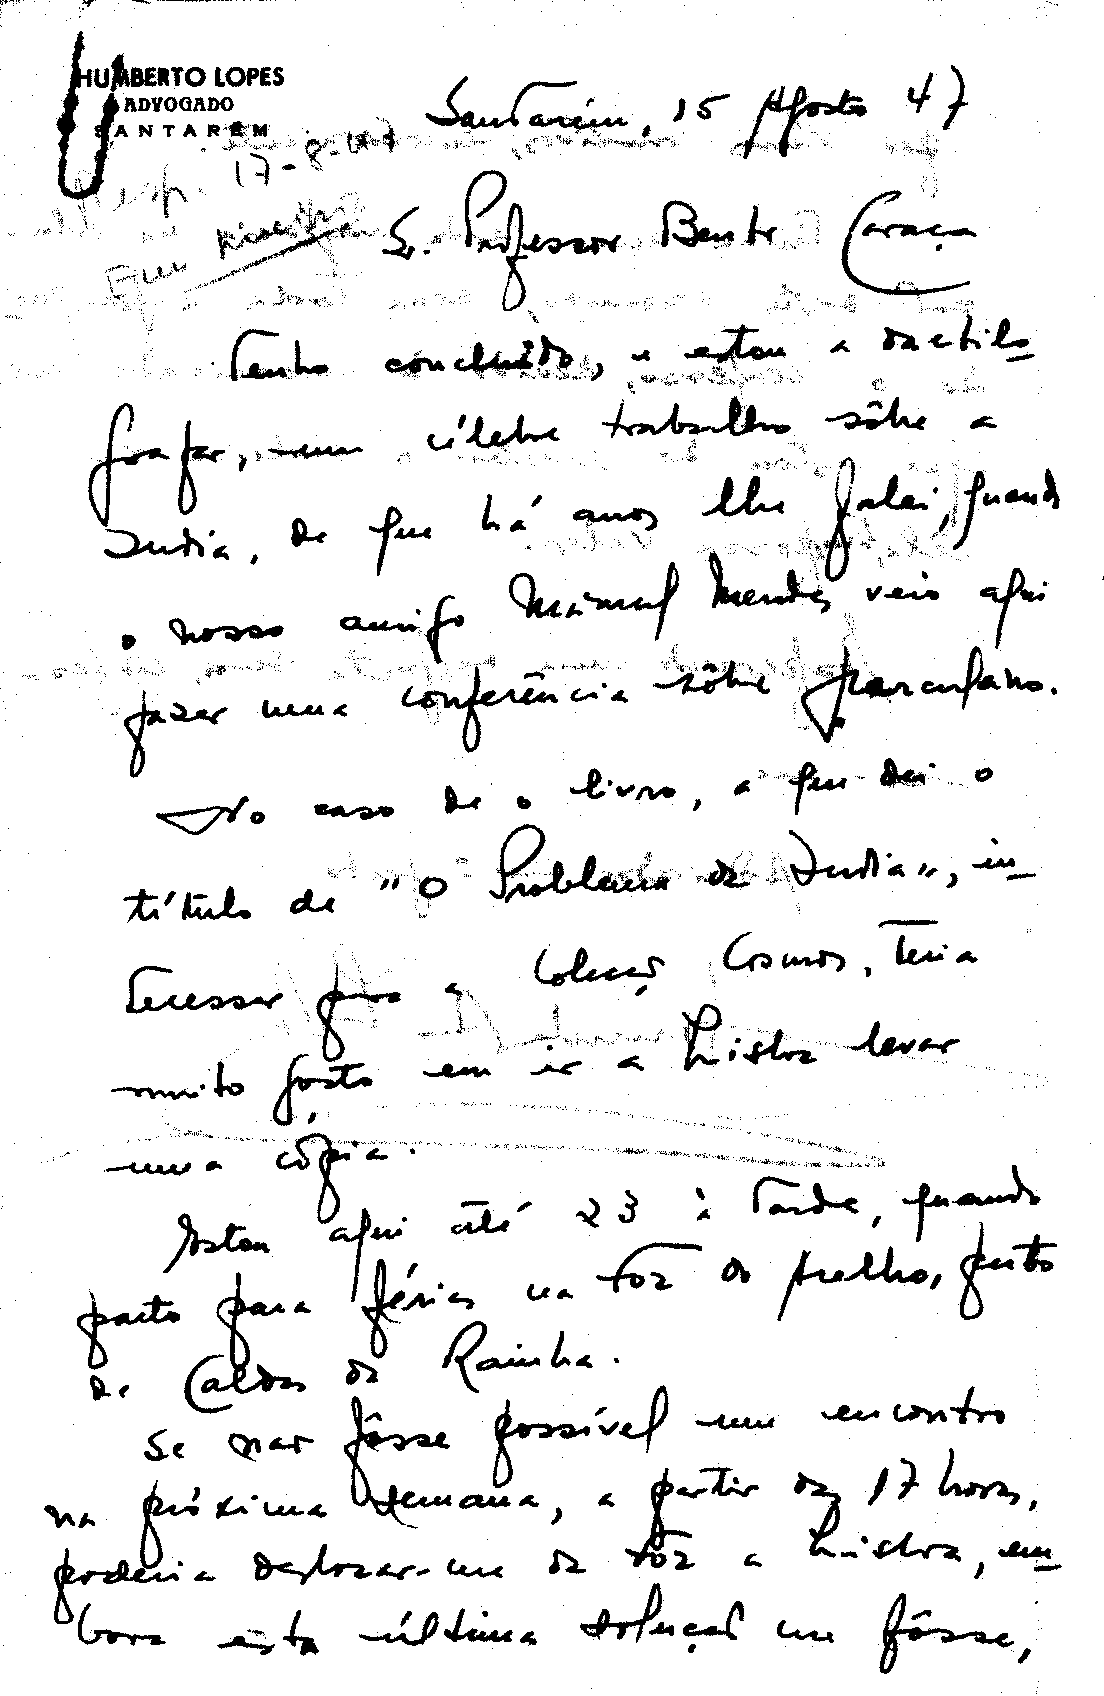 HUMBERTO LOPES
ADVOGADO
SANTARÉM
Santarém, 15 Agosto 47
17-8-47
Sr. Professor Bento Caraça
Tenho concluído, e estou a dactilo-
grafar, um célebre trabalho sôbre a
India, de que há anos lhe falei, quando
o nosso amigo Manuel Mendes veio aqui
fazer uma conferência sôbre
No caso de o livro, a que dei o
título de "O Problema da India", in-
teressar para a Colecção Cosmos, teria
muito gosto em ir a Lisboa levar
uma cópia.
Estou aqui até 23 à tarde, quando
parto para férias na Foz do Arelho, perto
de Caldas da Rainha.
Se nar fôsse possível um encontro
na próxima semana, a partir das 17 horas,
poderia deslocar-me da Foz a Lisboa, em-
bora esta última soluçaõ me fôsse,